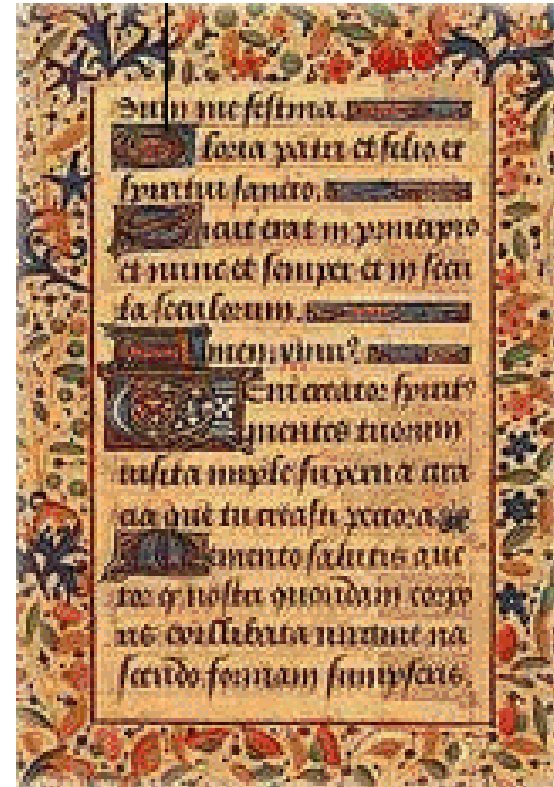 dum me festina.
Gloria patri et filio et
spiritui sancto.
Sicut erat in principio
et nunc et semper et in secu
la seculorum.
Amen. ymnus
Veni creator spiritus
mentes tuorum
visita imple superna gra
cia que tu creasti pectora
Memento salutis auc
tor quondam corpo
ris illibata virgine na
scendo formam sumpseris.